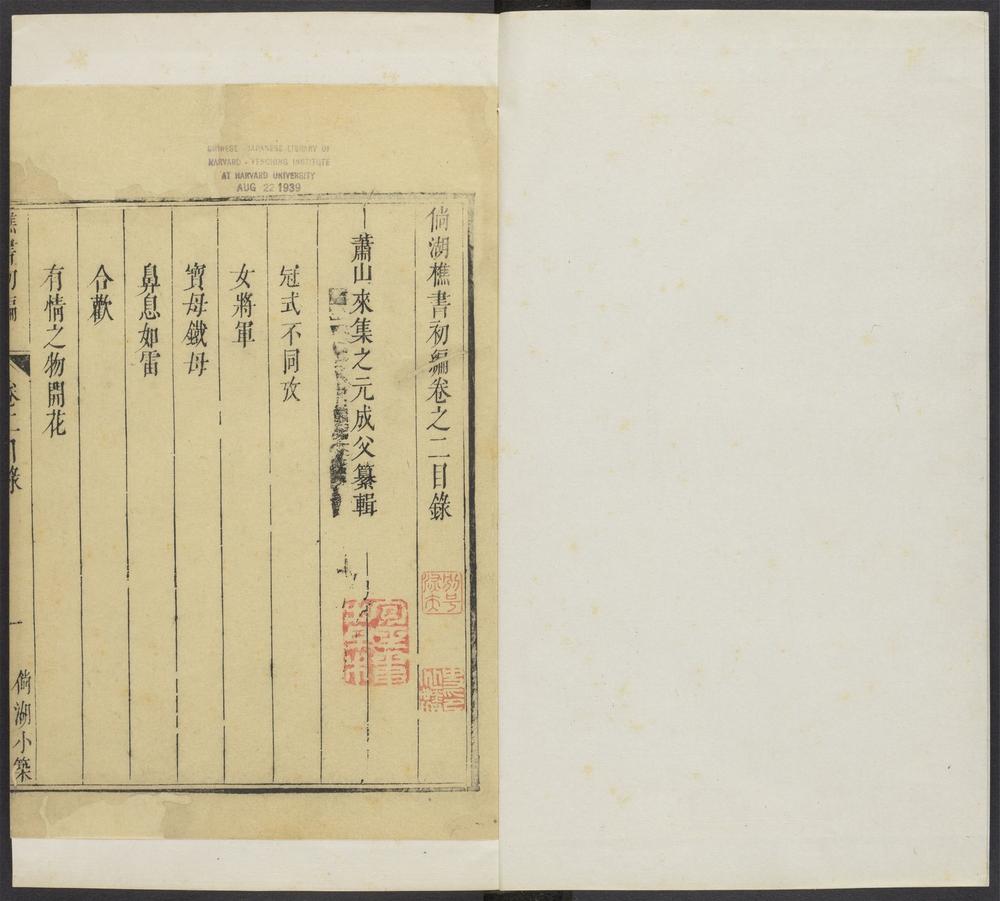 CHINESE - JAPANESE LIBRARY OF
HARVARD - YENCHING INSTITUTE
AT HARVARD UNIVERSITY
AUG 22 1939
倘湖樵書初編卷之二目錄
蕭山來集之元成父纂輯
冠式不同攷
女將軍
寶母鐵母
鼻息如雷
合歡
有情之物開花
樵書初編
卷二目錄
一
倘湖小築